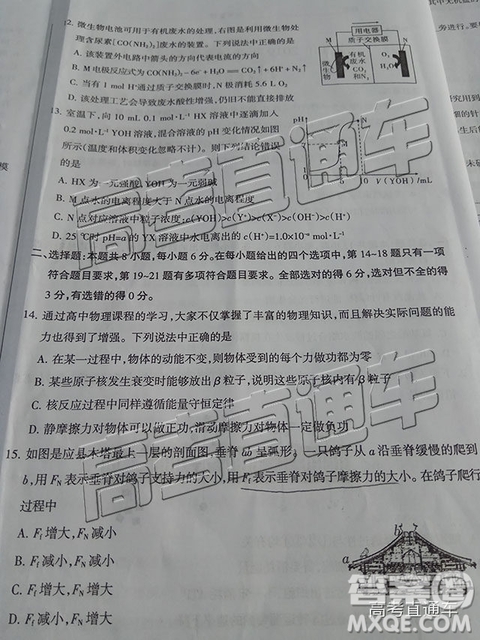 2. 微生物电池可用于有机废水的处理,右图是利用微生物处
理含尿素[CO(NH₂)₂]废水的装置。下列说法中正确的是
A. 该装置外电路中箭头的方向代表电流的方向
B. M电极反应式为
−6e⁻+H₂O=CO₂↑+6H⁺+N₂↑
C. 当有1 mol H⁺通过质子交换膜时,N极消耗5.6 L O₂
D. 该处理工艺会导致废水酸性增强,仍旧不能直接排放
用电器
质子交换膜
微生物
有机废水
CO₂和N₂
M
N
O₂
H₂O
13. 室温下,向10 mL 0.1 mol·L⁻¹ HX溶液中逐滴加入
0.2 mol·L⁻¹ YOH溶液,混合溶液的pH变化情况如图
所示(温度和体积变化忽略不计)。则下列结论错误
的是
pH
M
N
V(YOH)/mL
A. HX为一元强酸,YOH为一元弱碱
B. M点水的电离程度大于N点水的电离程度
C. N点对应溶液中粒子浓度:c(YOH)>c(Y⁺)>c(X⁻)>c(OH⁻)>c(H⁺)
D. 25℃时pH=a的YX溶液中水电离出的c(H⁺)=1.0×10⁻ᵃ mol·L⁻¹
二、选择题:本题共8小题,每小题6分。在每小题给出的四个选项中,第14~18题只有一项
符合题目要求,第19~21题有多项符合题目要求。全部选对的得6分,选对但不全的得
3分,有选错的得0分。
14. 通过高中物理课程的学习,大家不仅掌握了丰富的物理知识,而且解决实际问题的能
力也得到了增强。下列说法中正确的是
A. 在某一过程中,物体的动能不变,则物体受到的每个力做功都为零
B. 某些原子核发生衰变时能够放出β粒子,说明这些原子核内有β粒子
C. 核反应过程中同样遵循能量守恒定律
D. 静摩擦力对物体可以做正功,滑动摩擦力对物体一定做负功
15. 如图是应县木塔最上一层的剖面图,垂脊ab呈弧形。一只鸽子从a沿垂脊缓慢的爬到
b,用Fɴ表示垂脊对鸽子支持力的大小,用Ff表示垂脊对鸽子摩擦力的大小。在鸽子爬行
过程中
A. Ff增大,Fɴ减小
B. Ff减小,Fɴ减小
C. Ff增大,Fɴ增大
D. Ff减小,Fɴ增大
a
高考直通车
高考直通车
答案圈
高考直通车
MXQE.COM